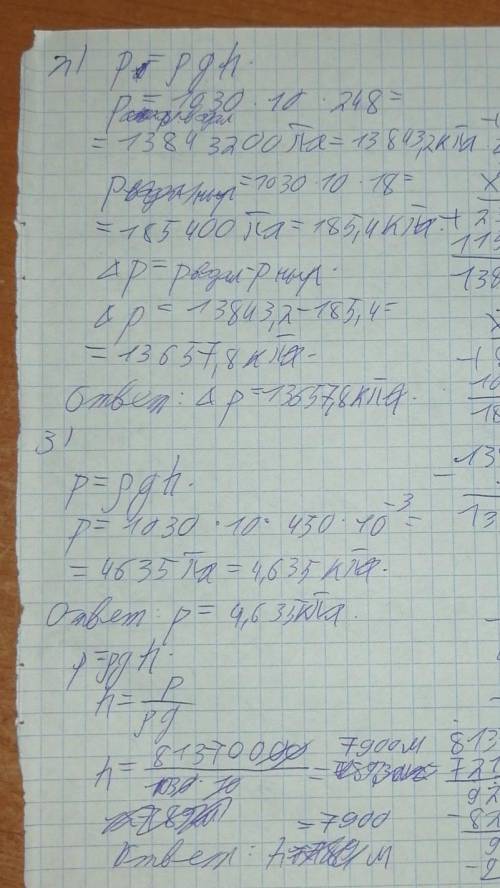 p = ρgh.
= 1030 · 10 · 248 =
= 13843200 Па = 13843,2 кПа.
= 1030 · 10 · 18 =
= 185400 Па = 185,4 кПа.
Δp = pводл - pныр.
Δp = 13843,2 - 185,4 =
= 13657,8 кПа.
Ответ: Δp = 13657,8 кПа.
3)
p = ρgh.
p = 1030 · 10 · 450 · 10⁻³ =
= 4635 Па = 4,635 кПа.
Ответ: p = 4,635 кПа.
p = ρgh.
h = p/ρg
h = 81370000/1030·10 = 7900 м
= 7900
Ответ: м